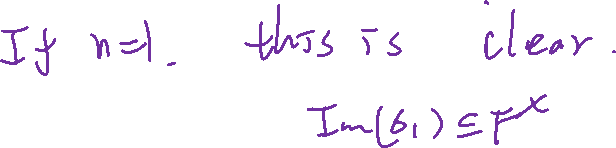 If n=1. this is clear.
Im(σ₁) ⊆ F^×